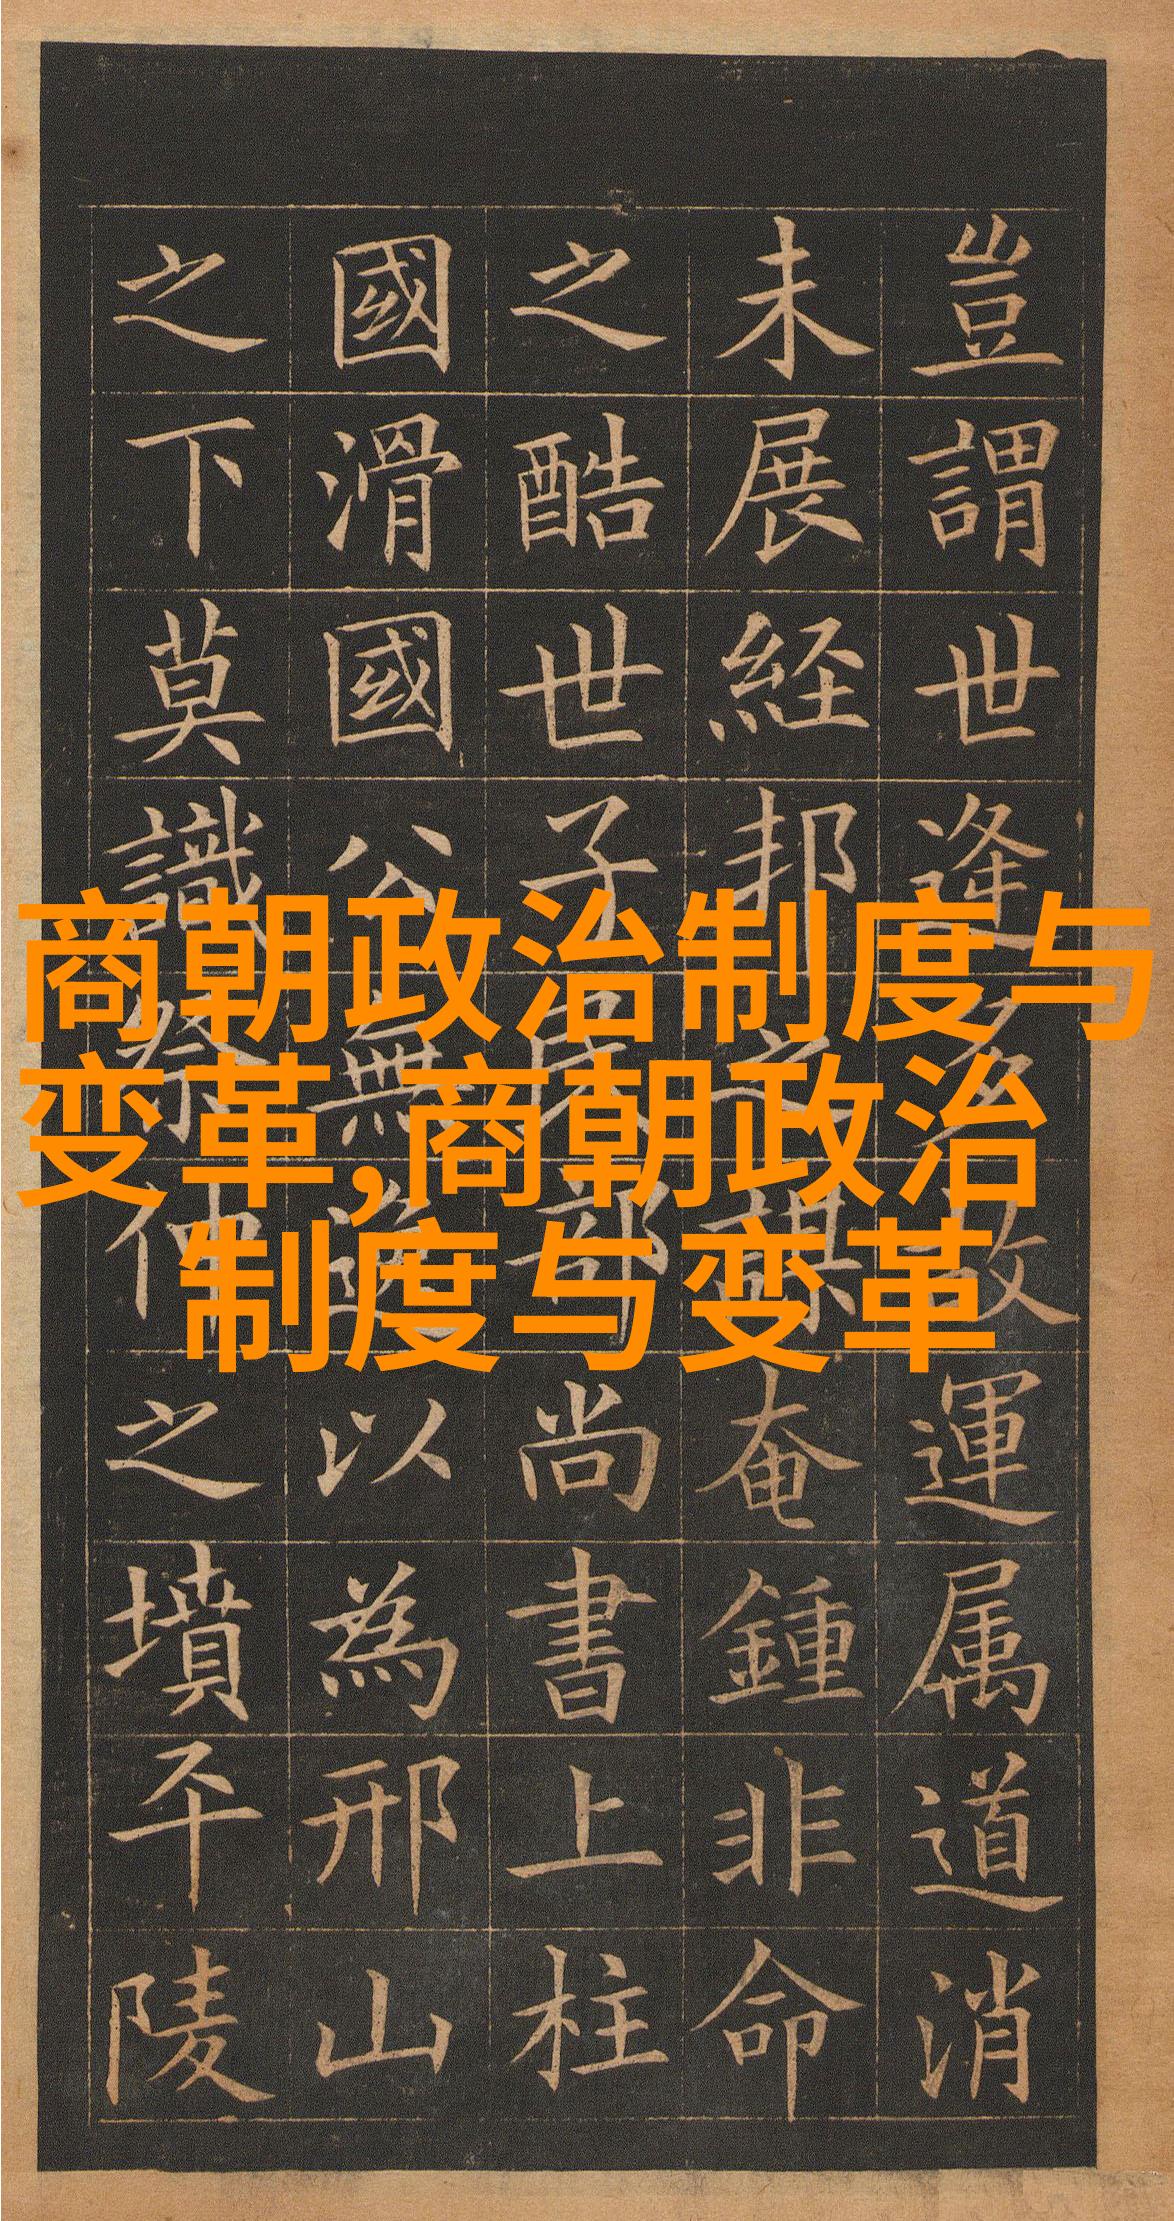 商朝政治制度与
变革,商朝政治
制度与变革
豈謂世逢多故運属道消
未展経邦之謀奄鍾非命
之酷世子民部尚書上柱
國滑國公無逸以為邢山
之下莫識祭仲之墳平陵